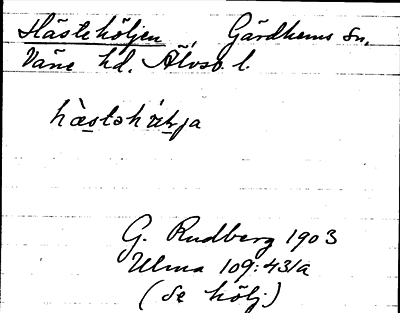 Hästehöljen, Gärdhems sn.
Väne hd. Älvsb. l.
G. Rudberg 1903
Ulma 109:431a
(Se hölj.)